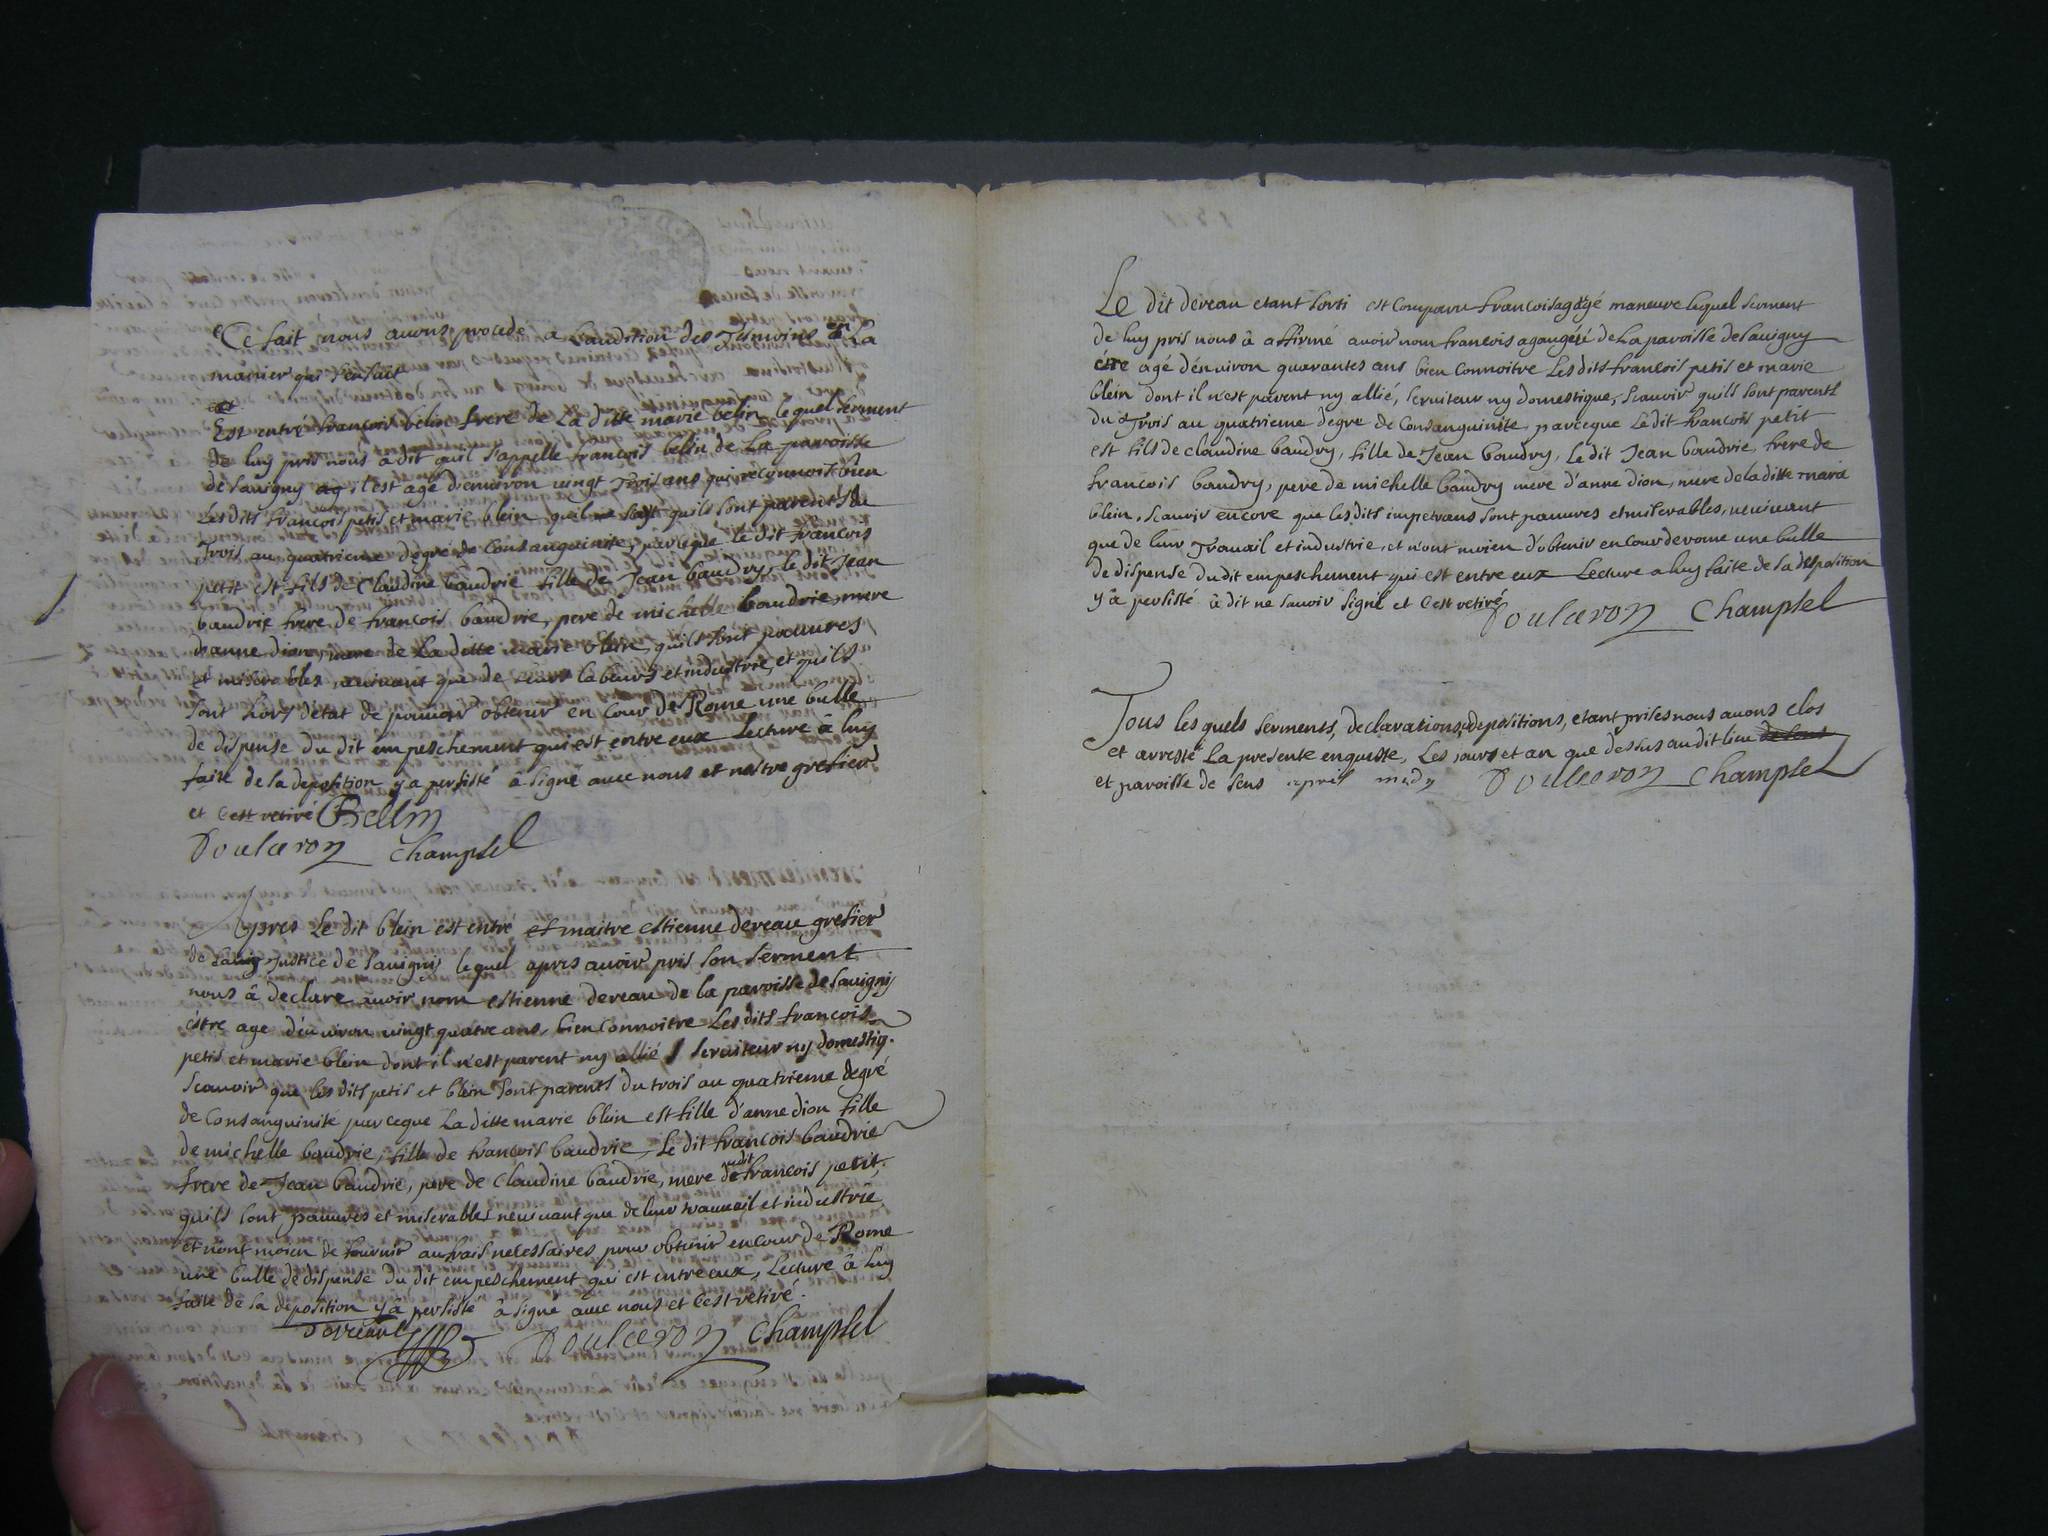 Ce fait nous avons procedé a Laudition des Tesmoins en La
manier qui s'ensuit
Est entré francois belin frere de La ditte marie belin lequel serment
de luy pris nous a dit quil s'appelle francois belin de La paroisse
de Savigny ag il est agé d'environ vingt Trois ans qui reconnoist bien
Les dits francois petis et marie blein quil sont quils sont parents du
Trois au quatrieme degré de Consanguinité, parceque le dit francois
petit est fils de Claudine baudrie fille de Jean baudry, le dit Jean
baudrie frere de francois baudrie, pere de michelle baudrie, mere
danne dion, mere de La ditte marie blein, quils sont pauvres
et miserables, nevivant que de leurs labeurs et industrie, et quils
sont hors detat de pouvoir obtenir en Cour de Rome une bulle
de dispense du dit empeschement qui est entre eux Lecture à luy
faite de sa deposition y a persisté à signé avec nous et nostre grefier
et C'est retiré Bellin
Doulceron Champsel
Apres Le dit blein est entré et maitre estienne deveau grefier
de Justice de Savigny lequel apres avoir pris son serment
nous à declare avoir nom estienne deveau de la paroisse de Savigny
éstre agé d'énviron vingt quatre ans, bien Connoitre Les dits francois
petis et marie blein dont il n'est parent ny allié, serviteur ny domestiq.
Scavoir que les dits petis et blein sont parents du trois au quatrieme degré
de Consanguinité parceque La ditte marie blein est fille d'anne dion fille
de michelle baudrie, fille de francois baudrie, Le dit francois baudrie
frere de Jean baudrie, pere de Claudine baudrie, mere de francois petit,
quils sont pauvres et miserables nevivant que de leur travail et industrie
et nont moien de fournir aux frais necessaires pour obtenir en cour de Rome
une bulle de dispense du dit empeschement qui est entre eux, Lecture à luy
faite de sa deposition y à persisté à signé avec nous et C'est retiré.
Doulceron Champsel
Le dit deveau etant sorti est Comparu francois agagé maneuvre lequel serment
de luy pris nous à affirmé avoir nom francois de La paroisse de Savigny
étre agé d'énviron quarantes ans bien Connoitre Les dits francois petis et marie
blein dont il n'est parent ny allié, serviteur ny domestique, Scavoir quils sont parents
du Trois au quatrieme degre de Consanguinité parceque Le dit francois petit
est fils de claudine baudry, fille de Jean baudry, le dit Jean baudrie, frere de
francois baudry, pere de michelle baudry mere d'anne dion, mere de la ditte marie
blein, Scavoir encore que les dits impetrans sont pauvres et miserables, nevivant
que de leur Travail et industrie, et n'ont moien d'obtenir en Cour de rome une bulle
de dispense du dit empeschement qui est entre eux Lecture a luy faite de sa desposition
y à persisté à dit ne savoir signé et C'est retiré
Doulceron Champsel
Tous lesquels serments, declarations, depositions, etant prises nous avons clos
et arresté La presente enqueste, Les jours et an que dessus audit lieu
et paroisse de Sens apres midy Doulceron Champsel